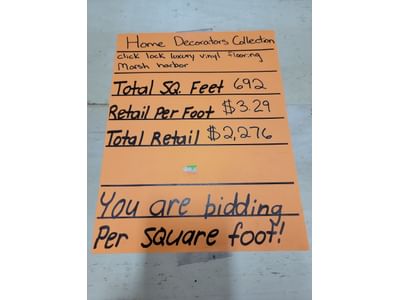 Home Decorators Collection
click lock luxury vinyl flooring
Marsh harbor
Total SQ. Feet 692
Retail Per Foot $3.29
Total Retail $2,276
You are bidding
Per square foot!